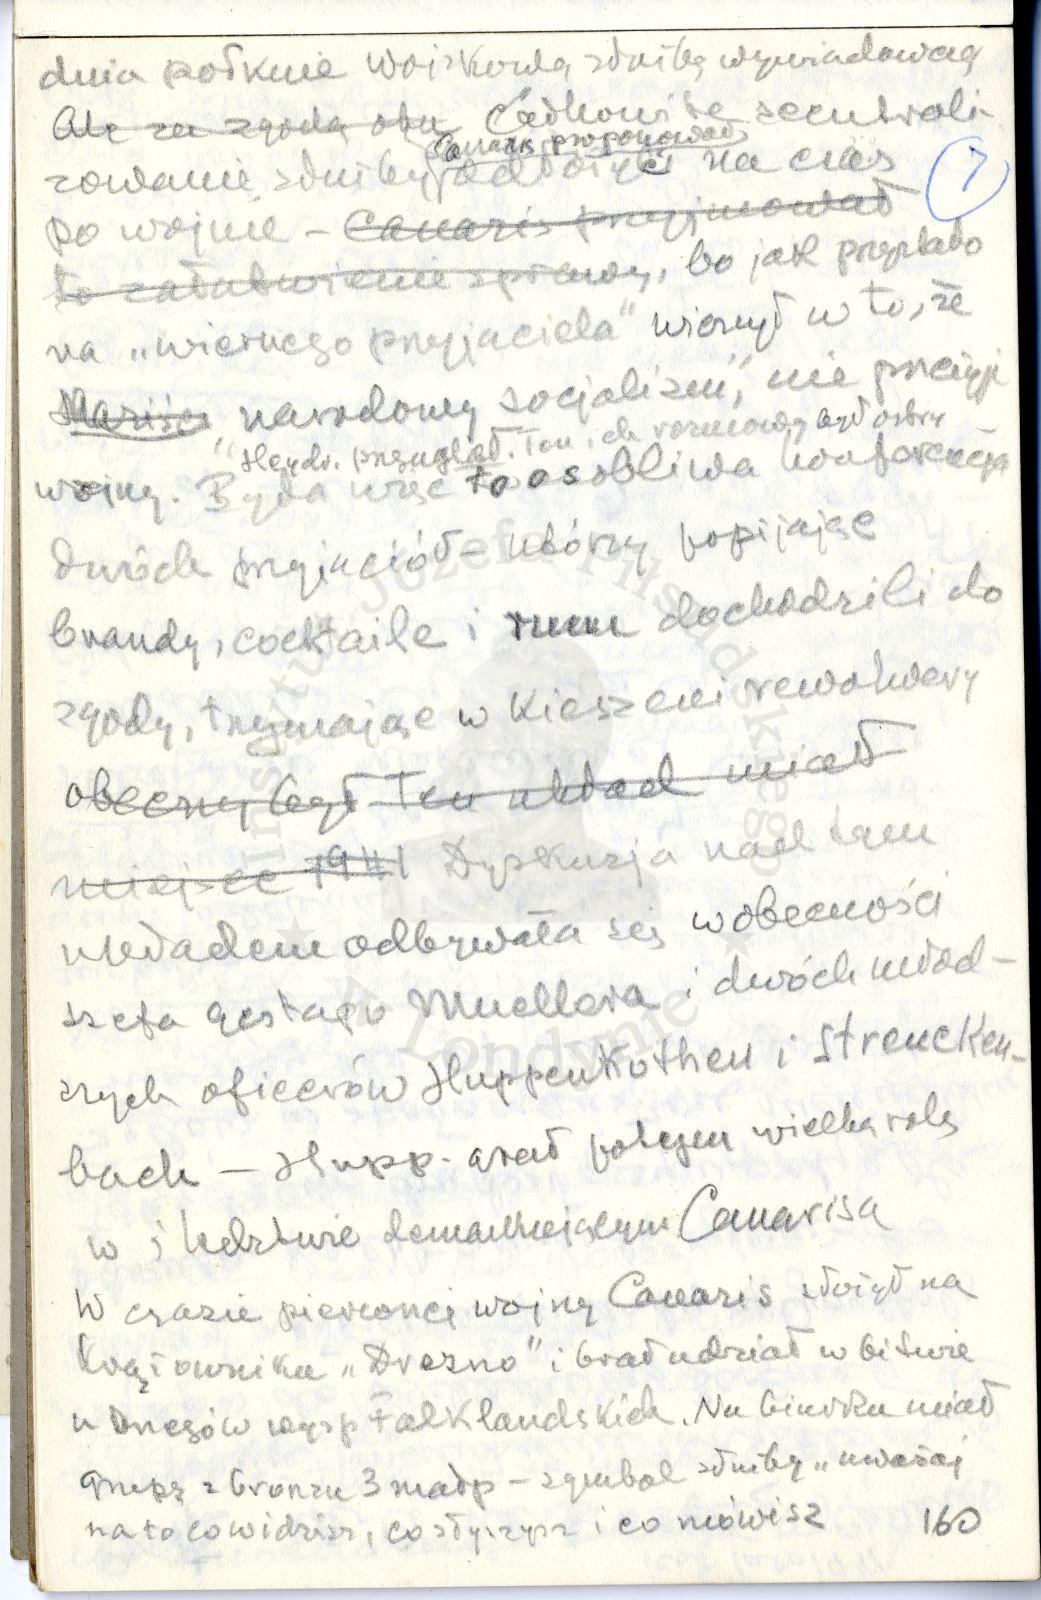 dnia połknie wojskową służbę wywiadowczą
Ale za zgodą obu Całkowite scentrali-
Canaris proponował
zowanie służby odłożyć na czas
7
po wojnie – Canaris przyjmował
to załatwienie sprawy, bo jak przystało
na „wiernego przyjaciela" wierzył w to, że
narodowy socjalizm, nie przeżyje
Heydr. Ten ich rozmowy był
wojny. Była więc to osobliwa konferencja
dwóch przyjaciół – którzy popijając
brandy, cocktaile i rum dochodzili do
zgody, trzymając w kieszeni rewolwery
obecny był Ten układ miał
miejsce 1941 Dyskusja nad tym
układem odbywała się w obecności
szefa gestapo Muellera i dwóch młod-
szych oficerów Huppenkothen i Strecken-
bach – Hupp. grał potem wielką rolę
w śledztwie Canarisa
W czasie pierwszej wojny Canaris służył na
krążowniku „Drezno" i brał udział w bitwie
u brzegów wysp Falklandskich. Na biurku miał
grupę z bronzu 3 małp – symbol służby „uważaj
na to co widzisz, co słyszysz i co mówisz
160
Instytut Józefa Piłsudskiego
w Londynie